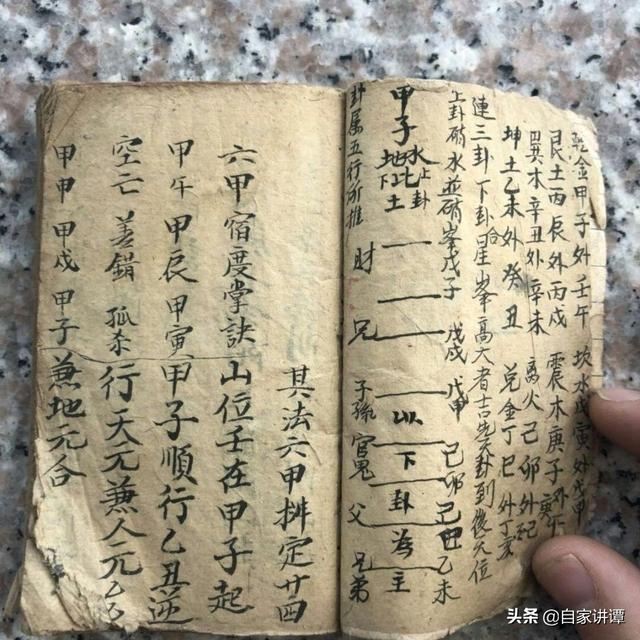 乾金甲子外壬午 坎水戊寅外戊申
艮土丙辰外丙戌 震木庚子外庚午
巽木辛丑外辛未 离火己卯外己
坤土乙未外癸丑 兑金丁巳外丁亥
連三卦下卦合星峯高大者吉先天卦到後天位
上卦硝水並硝峯戊子 戊戌 戊甲 己卯 己丑 乙未
甲子 水地比 上卦 下土 以下卦為主
卦属五行所推 財 兄 子孫 官鬼 父 兄弟
其法六甲掛定廿四
六甲宿度掌訣 山位壬在甲子起
甲午 甲辰 甲寅 甲子順行乙丑逆
空亡 差錯 孤杀 行天元兼人元乙
甲申 甲戌 甲子 兼地元合
头条 @自家讲谭